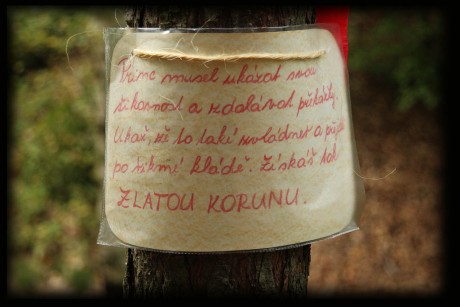 Princ musel ukázat svou
šikovnost a zdolávat překážky.
Ukaž, že to také zvládneš a přejdi
po šikmé kládě. Získáš tak
ZLATOU KORUNU.